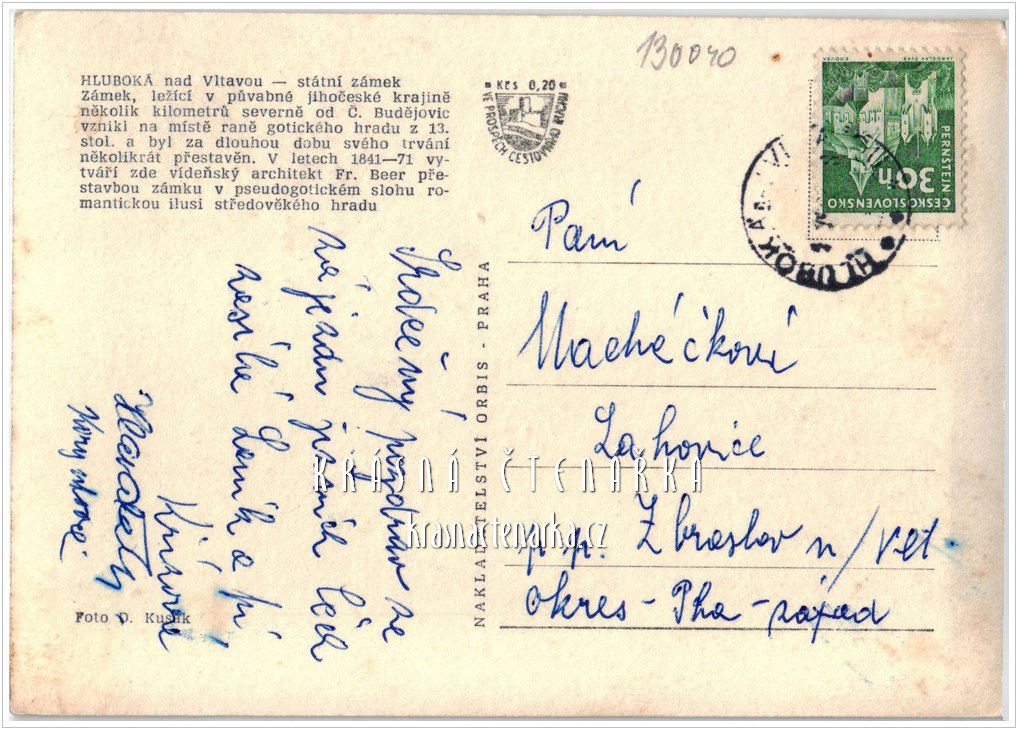 HLUBOKÁ nad Vltavou — státní zámek
Zámek, ležící v půvabné jihočeské krajině
několik kilometrů severně od Č. Budějovic
vznikl na místě raně gotického hradu z 13.
stol. a byl za dlouhou dobu svého trvání
několikrát přestavěn. V letech 1841—71 vy-
tváří zde vídeňský architekt Fr. Beer pře-
stavbou zámku v pseudogotickém slohu ro-
mantickou ilusi středověkého hradu
Kčs 0,20
VE PROSPĚCH CESTOVNÍHO RUCHU
130040
JAROSLAV ŠVÁB
B. HOUSA
PERNŠTEJN
ČESKOSLOVENSKO
30h
HLUBOKÁ
Srdečný pozdrav ze
zájezdu
zasílá
Foto D.
NAKLADATELSTVÍ ORBIS - PRAHA
Paní
Macháčková
Lahovice
p. p. Zbraslav n/Vlt.
okres - Pha - západ
KRÁSNÁ ČTENÁŘKA
krasnactenarka.cz